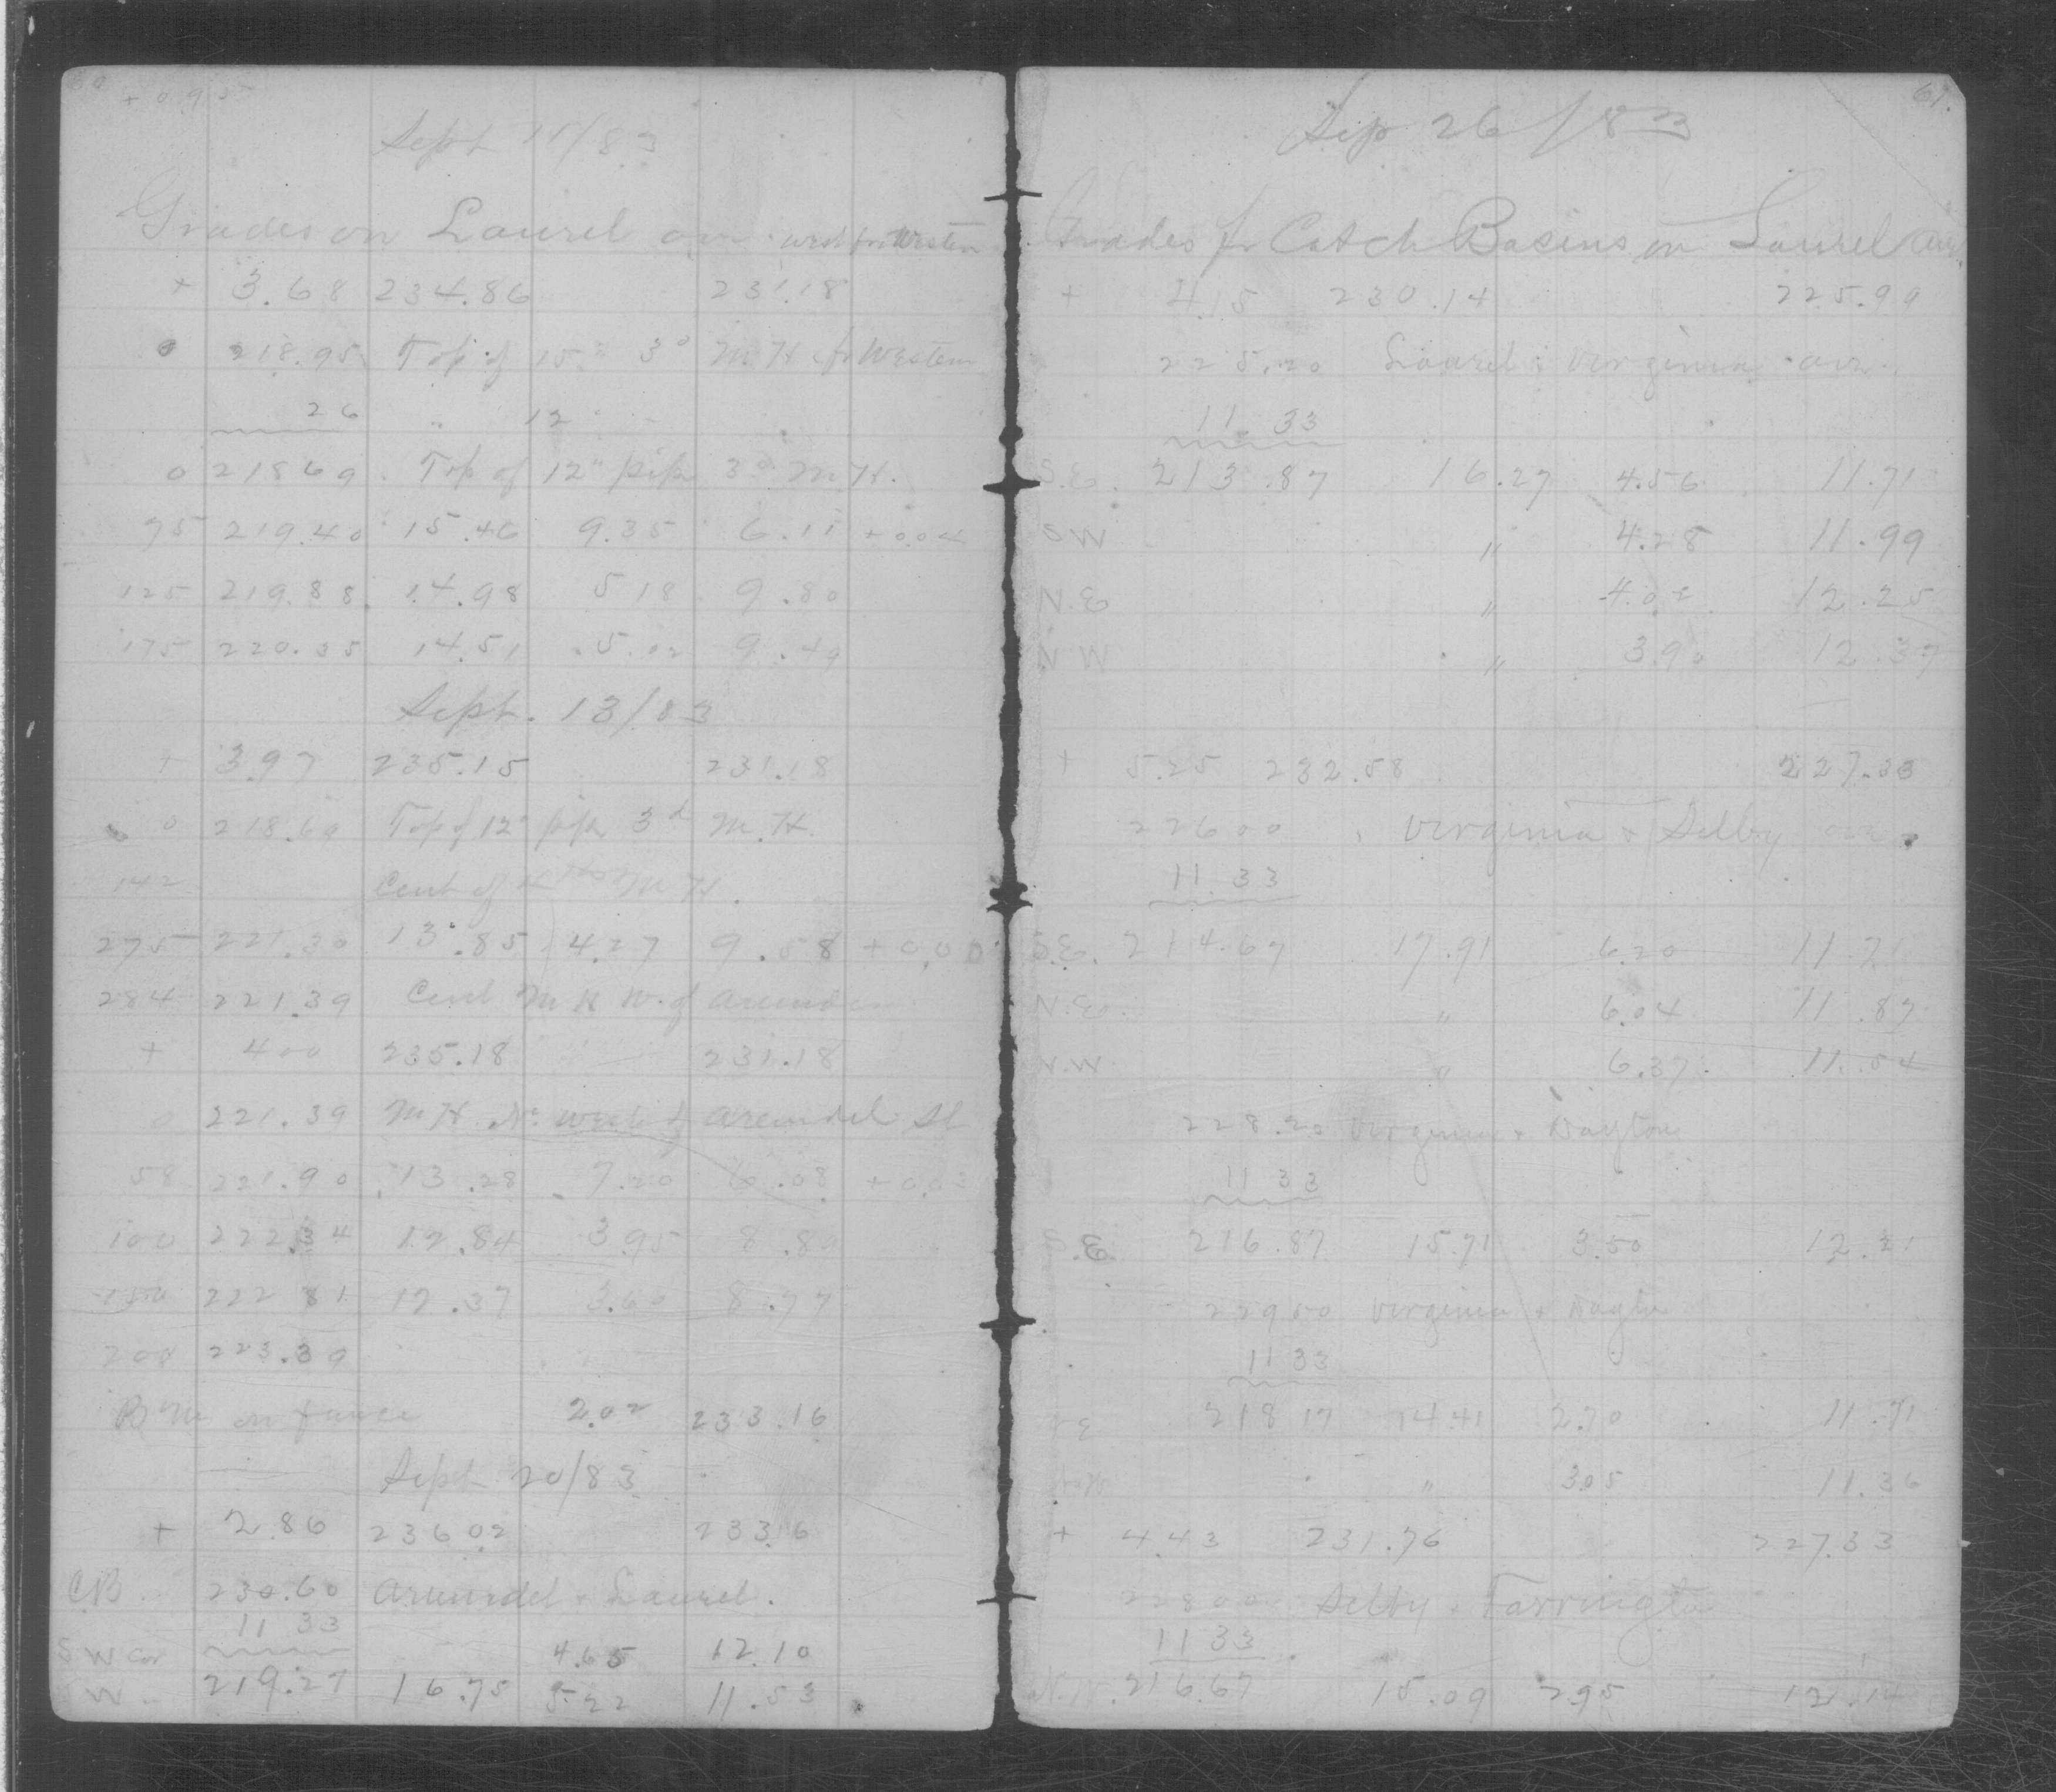 60
+ 0 9 5
Sept 11/83
Grades on Laurel ave west fr Western
+ 3.68 234.86 231.18
0 218.95 Top of 15" 3d M.H. fr Western
26 " 12"
0 218 69 Top of 12" pipe 3d M.H.
75 219.40 15.46 9.35 6.11 +0.04
125 219.88 14.98 5 18 9.80
175 220.35 14.51 5.02 9.49
Sept. 13/83
+ 3.97 235.15 231.18
0 218.69 Top of 12" pipe 3d M.H.
142 Cent of M H.
275 221.30 13.85 4.27 9.58 +0.00
284 221.39 Cent M H W. of Arundel
+ 400 235.18 231.18
0 221.39 M.H. No. west of Arundel St
58 221.90 13.28 7.20 6.08 +0.03
100 222.34 12.84 3.95 8.89
150 222 81 12.37 3.60 8.77
208 223.39
B M on fence 2.02 233.16
Sept 20/83
+ 2.86 236 02 233.16
CB 230.60 Arundel & Laurel.
11 33
S W Cor 4.65 12.10
W 219.27 16.75 5.22 11.53
61.
Sep 26/83
Grades for Catch Basins on Laurel ave.
+ 4.15 230.14 225.99
225.20 Laurel & Virginia ave.
11.33
S.E. 213.87 16.27 4.56 11.71
SW " 4.28 11.99
N.E " 4.02 12.25
N W " 3.90 12.37
+ 5.25 232.58 227.33
226 00 Virginia & Selby ave.
11.33
S.E. 214.67 17.91 6.20 11.71
N.E. " 6.04 11.87
N.W. " 6.37 11.54
228.20 Virginia & Dayton
11 33
S.E. 216.87 15.71 3.50 12.21
229 50 Virginia & Dayton
11 33
218 17 14.41 2.70 11.71
" 3.05 11.36
+ 4.43 231.76 227.33
228 00 Selby & Farrington
11 33
N.W. 216.67 15.09 2.95 12.14